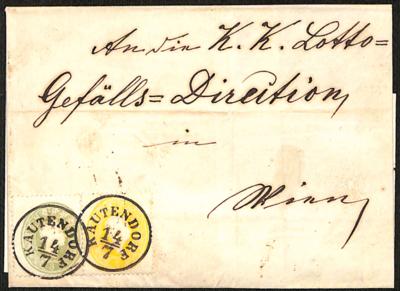 An die K. K. Lotto=
Gefälls=Direction
in
Wien
KAUTENDORF
14/7
KAUTENDORF
14/7